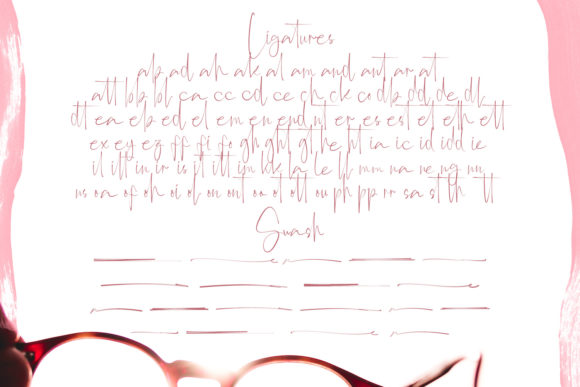 Ligatures
ab ad ah ak al am and ant ar at
att bb bl ca cc cd ce ch ck co db dd de dh
dt ea eb ed el em en end nt er es est et eth ett
ex ey ez ff fi fo gh ght gt he ht ia ic id idd ie
il itt in ir is it itt
la le ll mm na ne ng nn
ns oa of oh oi ol on ont oo ot ott ou ph pp rr sa st th tt
Swash